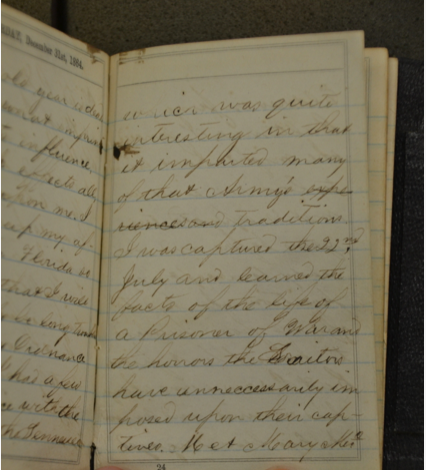 DAY, December 31st, 1864.
old year
influence,
collects all
upon me. I
up my af-
Florida
that I will
be long
Ordnance
had a
with the
the Tennessee
which was quite
interesting in that
it imparted many
of that Army's expe
riences and traditions
I was captured the 22nd,
July and learned the
facts of the life of
a Prisoner of War and
the horrors the Traitors
have unneccessarily im
posed upon their cap-
tives. Met Mary
24